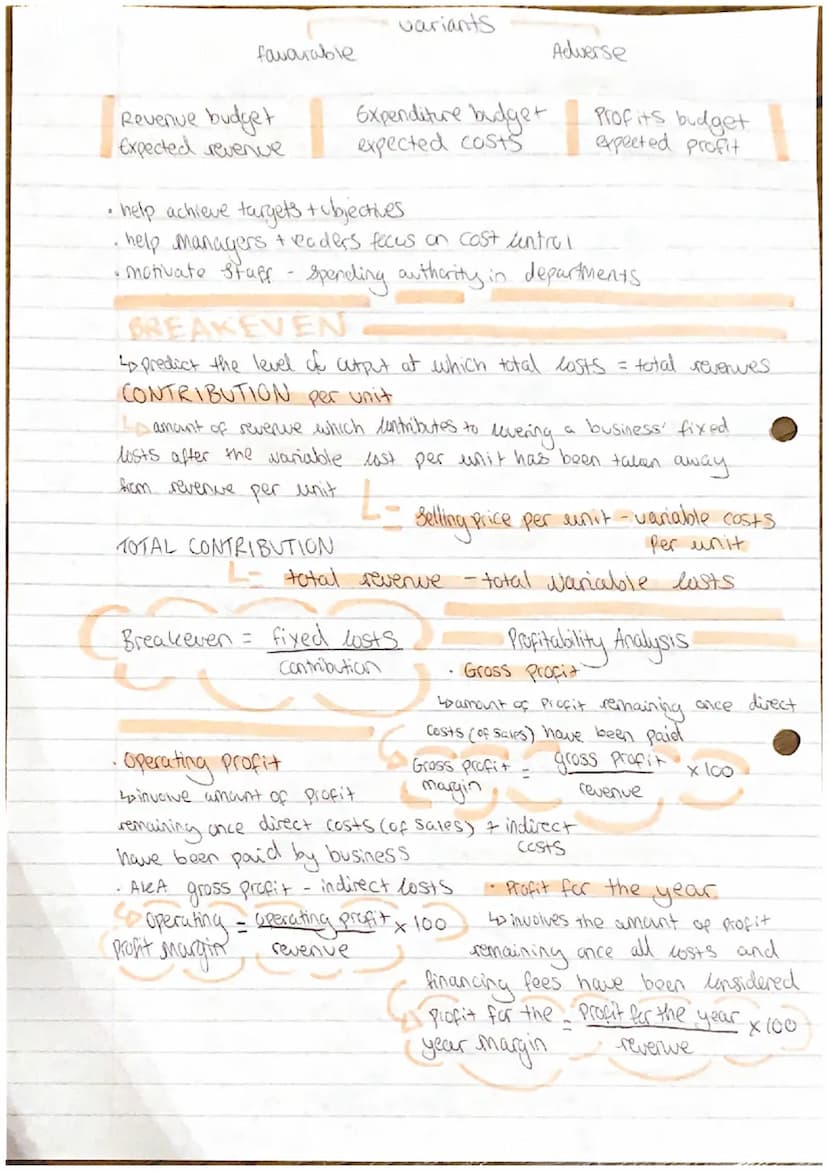 variants
favourable Adverse
Revenue budget
Expected revenue
Expenditure budget
expected costs
Profits budget
expected profit
· help achieve targets + objectives
· help managers + leaders focus on cost control
· motivate staff - spending authority in departments
BREAKEVEN
↳ predict the level of output at which total costs = total revenues
CONTRIBUTION per unit
↳ amount of revenue which contributes to covering a business' fixed
costs after the variable cost per unit has been taken away
from revenue per unit
= selling price per unit - variable costs
per unit
TOTAL CONTRIBUTION
= total revenue - total variable costs
Breakeven = fixed costs
contribution
Profitability Analysis
· Gross profit
↳ amount of profit remaining once direct
costs (of sales) have been paid
↳ Gross profit = gross profit × 100
margin revenue
· Operating profit
↳ involve amount of profit
remaining once direct costs (of sales) + indirect
costs
have been paid by business
· AKA gross profit - indirect costs
↳ Operating = operating profit × 100
profit margin revenue
· Profit for the year
↳ involves the amount of profit
remaining once all costs and
financing fees have been considered
↳ profit for the = Profit for the year × 100
year margin revenue